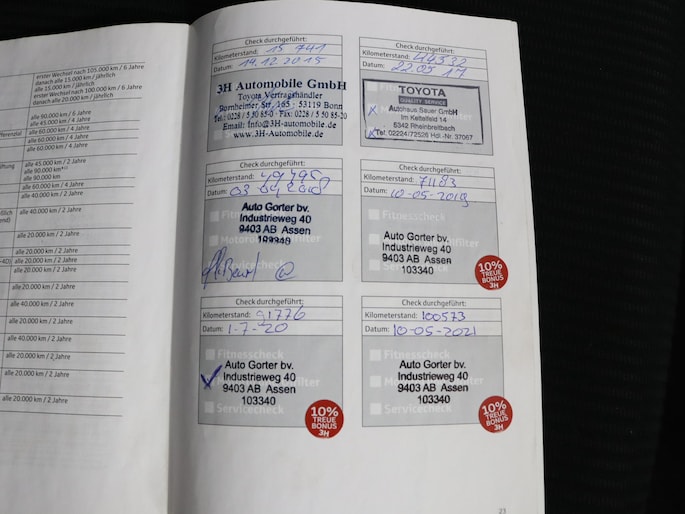 erster Wechsel nach 105.000 km / 6 Jahre
danach alle 15.000 km / jährlich
alle 15.000 km / jährlich
erster Wechsel nach 100.000 km / 6 Jahre
danach alle 20.000 km / jährlich
alle 90.000 km / 6 Jahre
alle 45.000 km / 2 Jahre
alle 60.000 km / 4 Jahre
alle 60.000 km / 4 Jahre
alle 60.000 km / 4 Jahre
alle 45.000 km / 2 Jahre
alle 90.000 km
alle 90.000 km
alle 60.000 km / 4 Jahre
alle 40.000 km / 2 Jahre
alle 40.000 km / 2 Jahre
alle 20.000 km / 2 Jahre
alle 20.000 km / 2 Jahre
alle 20.000 km / 2 Jahre
alle 20.000 km / 2 Jahre
alle 40.000 km / 2 Jahre
alle 20.000 km / 2 Jahre
alle 40.000 km / 2 Jahre
alle 20.000 km / 2 Jahre
alle 20.000 km / 2 Jahre
alle 20.000 km / 2 Jahre
Check durchgeführt:
Kilometerstand: 15 741
Datum: 14.12.2015
3H Automobile GmbH
Toyota Vertragshändler
Bornheimer Str. 165 · 53119 Bonn
Tel.: 0228 / 5 50 85-0 · Fax: 0228 / 5 50 85-20
Email: Info@3H-Automobile.de
www.3H-Automobile.de
Check durchgeführt:
Kilometerstand: 44532
Datum: 22.05.17
TOYOTA
QUALITY SERVICE
Autohaus Sauer GmbH
Im Kettelfeld 14
5342 Rheinbreitbach
Tel. 02224/72526 Hdl.-Nr. 37067
Check durchgeführt:
Kilometerstand:
Datum: 03 04 2018
Auto Gorter bv.
Industrieweg 40
9403 AB Assen
103340
Check durchgeführt:
Kilometerstand: 71183
Datum: 10-05-2019
Auto Gorter bv.
Industrieweg 40
9403 AB Assen
103340
10%
TREUE
BONUS
3H
Check durchgeführt:
Kilometerstand: 91776
Datum: 1-7-20
Fitnesscheck
Auto Gorter bv.
Industrieweg 40
9403 AB Assen
103340
Servicecheck
10%
TREUE
BONUS
3H
Check durchgeführt:
Kilometerstand: 100573
Datum: 10-05-2021
Fitnesscheck
Auto Gorter bv.
Industrieweg 40
9403 AB Assen
103340
Servicecheck
10%
TREUE
BONUS
3H
23